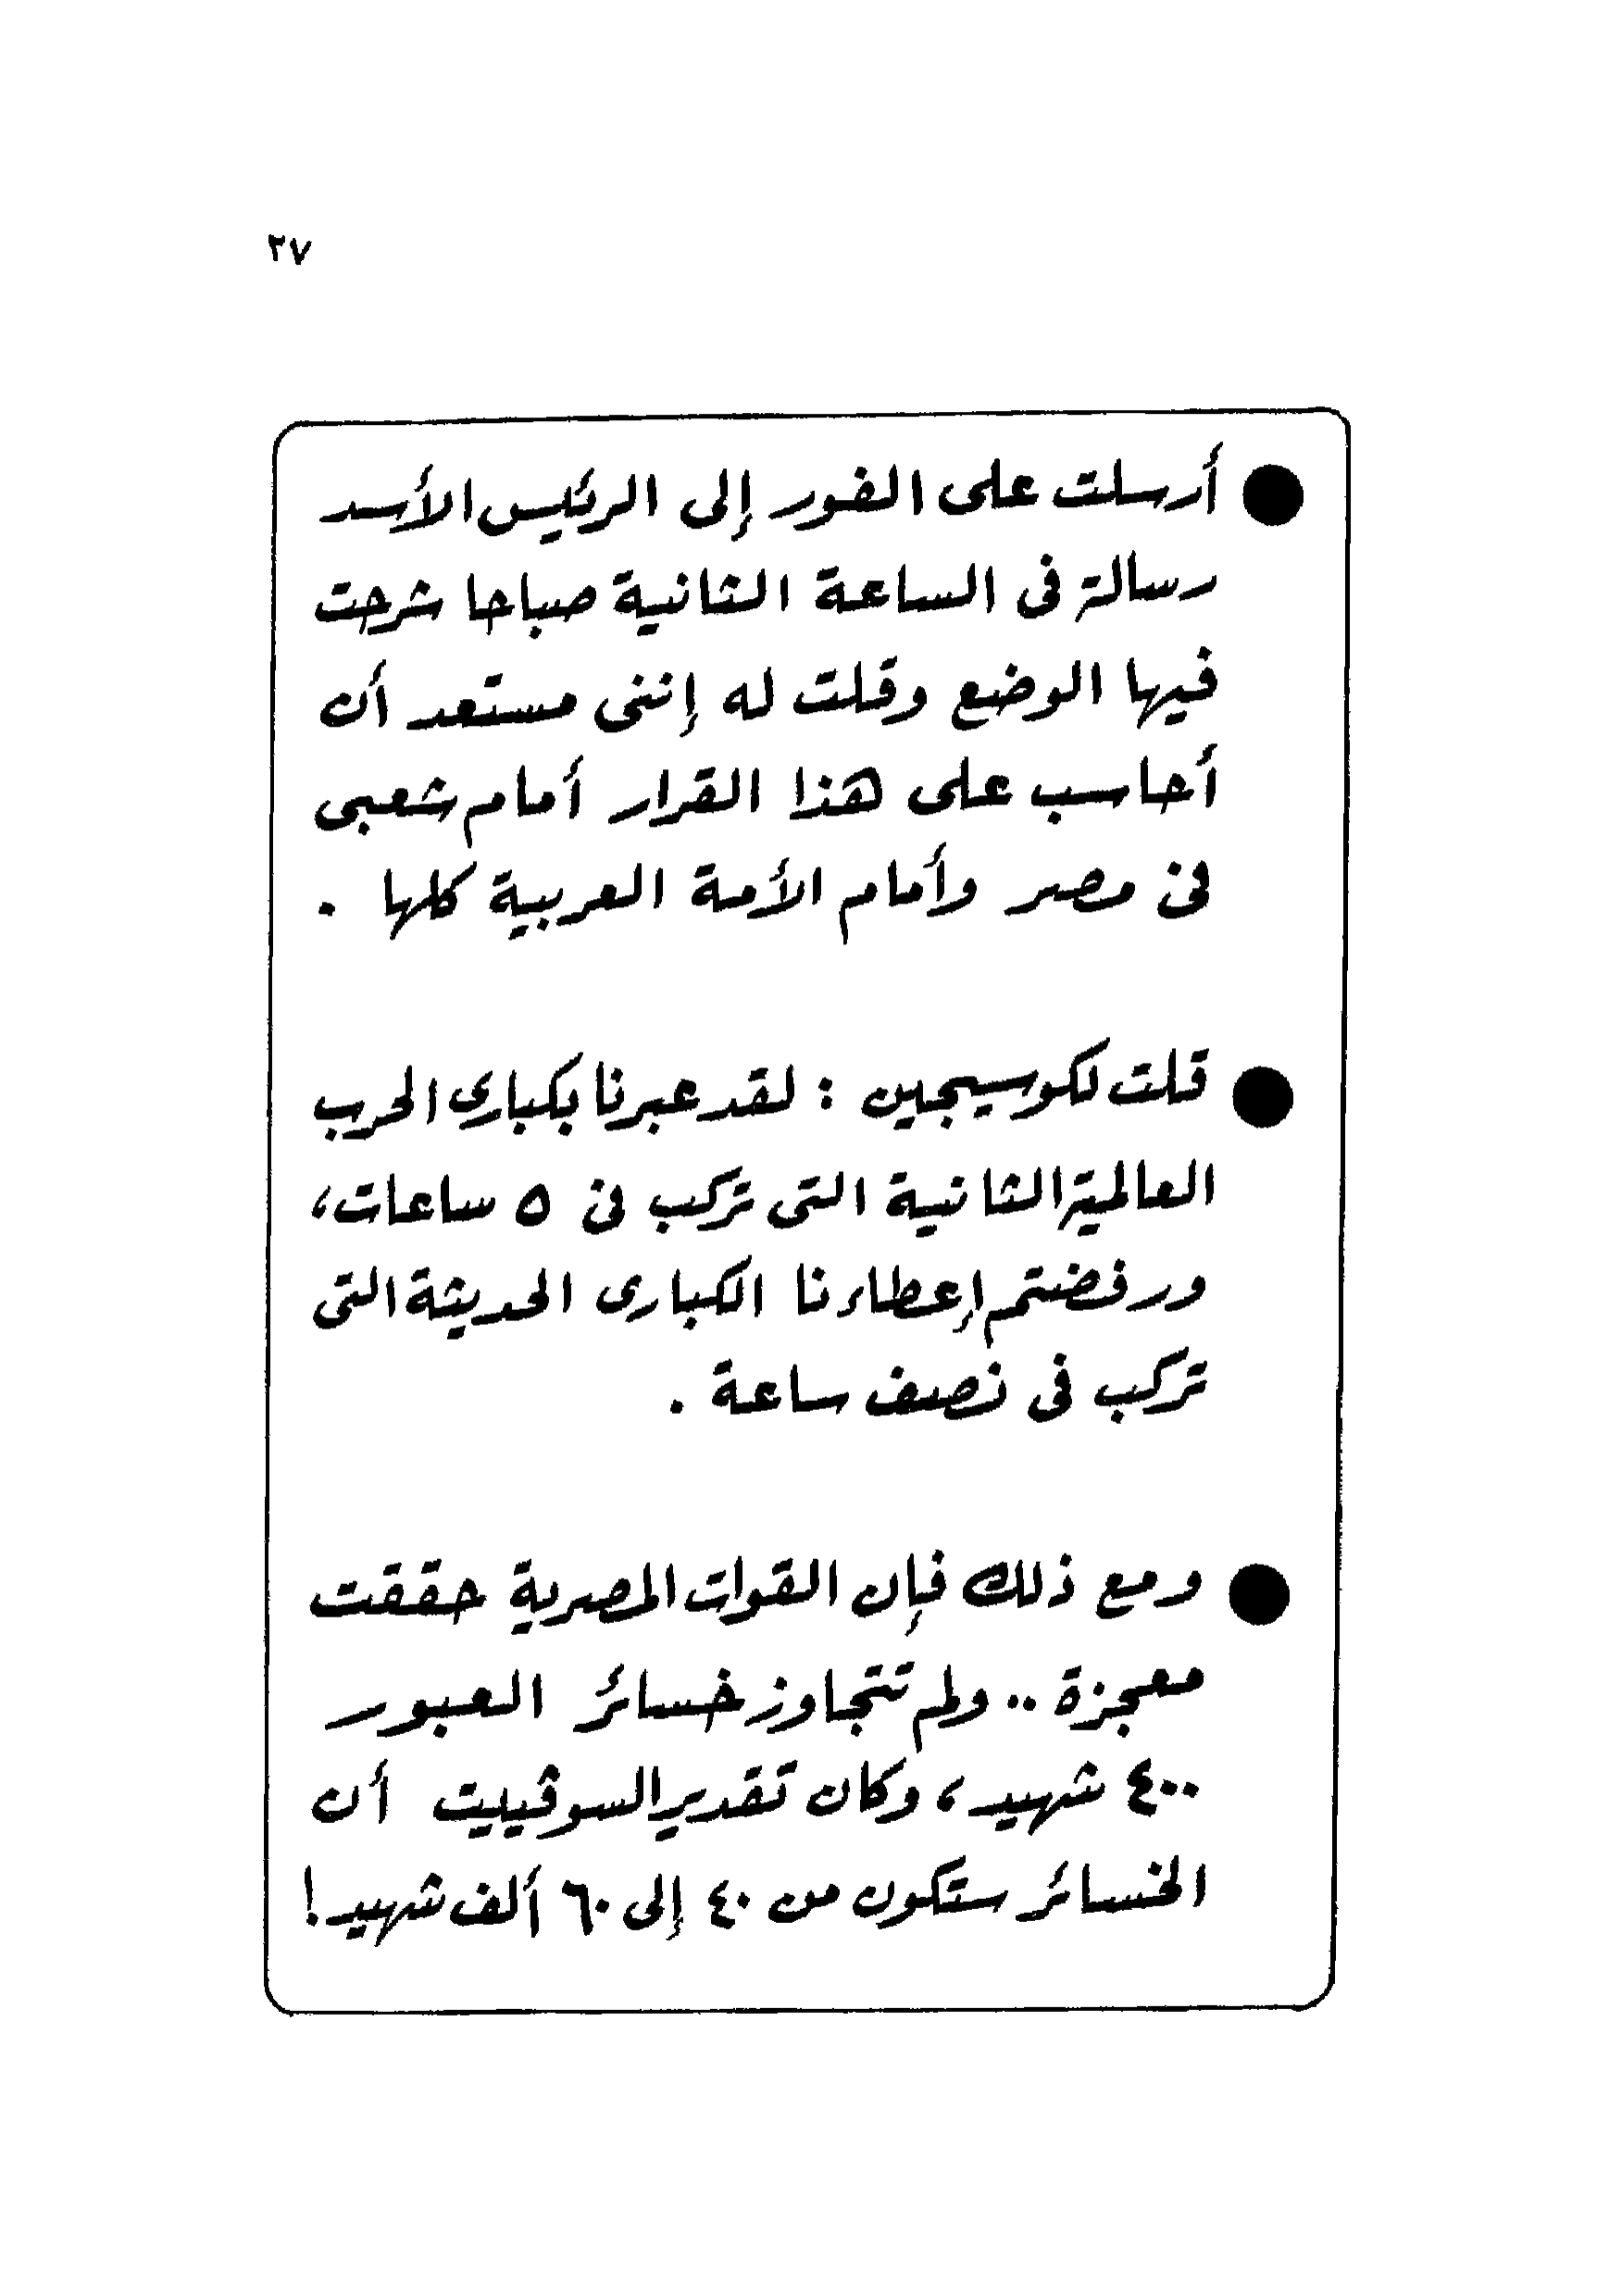 ٢٧
● أرسلت على الفور إلى الرئيس الأسد
رسالة فى الساعة الثانية صباحا شرحت
فيها الوضع وقلت له إننى مستعد أن
أحاسب على هذا القرار أمام شعبى
فى مصر وأمام الأمة العربية كلها .
● قلت لكوسيجين : لقد عبرنا بكبارى الحرب
العالمية الثانية التى تركب فى ٥ ساعات،
ورفضتم إعطاءنا الكبارى الحديثة التى
تركب فى نصف ساعة .
● ومع ذلك فإن القوات المصرية حققت
معجزة .. ولم تتجاوز خسائر العبور
٤٠٠ شهيد، وكان تقدير السوڤييت أن
الخسائر ستكون من ٤٠ إلى ٦٠ ألف شهيد!